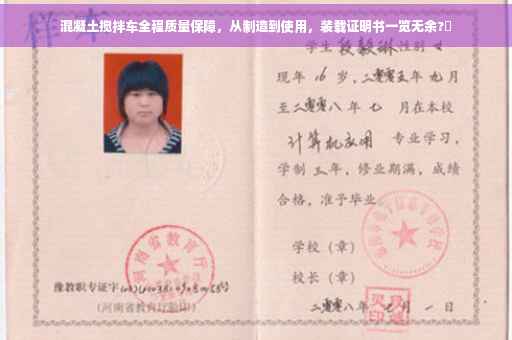 混凝土搅拌车全福质量保障，从制造到使用，装载证明书一览无余?
样本
学生段毅琳性别女
现年16岁，二零零五年九月
至二零零八年七月在本校
计算机应用 专业学习，
学制三年，修业期满，成绩
合格，准予毕业。
学校（章）
校长（章）
二零零八年 月一日
河南省教育厅
豫教职专证字
（河南省教育厅验印）